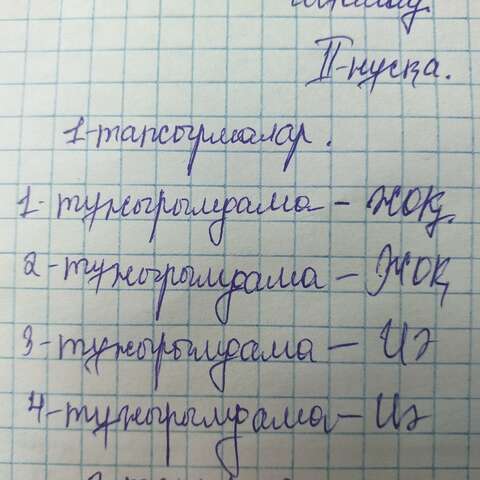 II-нұсқа.
1-тапсырмалар.
1-тұжырымдама – ЖОҚ.
2-тұжырымдама – ЖОҚ
3-тұжырымдама – Иә
4-тұжырымдама – Иә